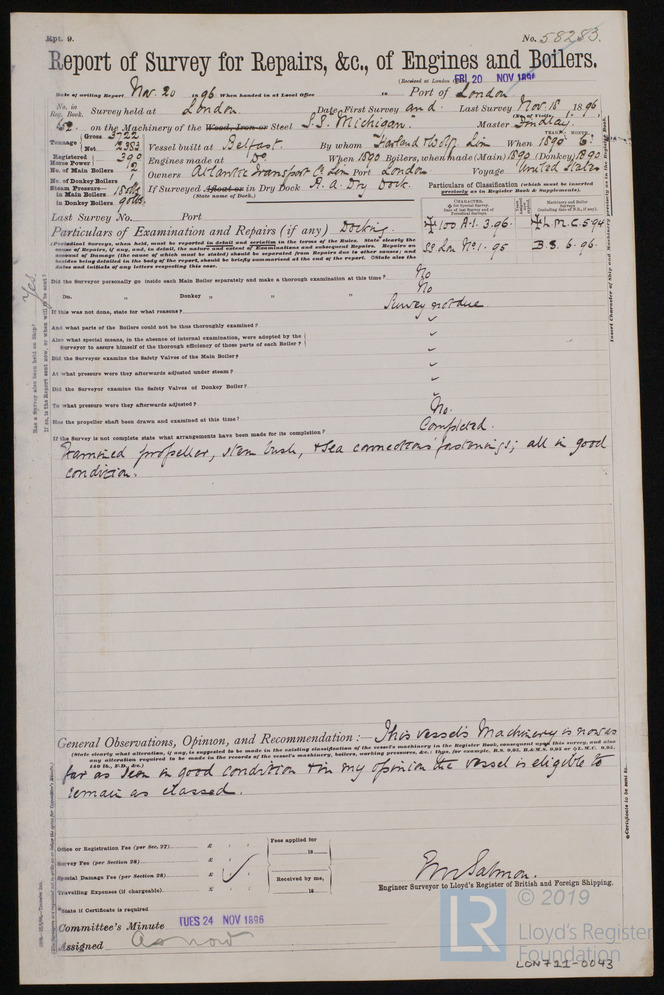 Rpt. 9.
No. 58283.
Report of Survey for Repairs, &c., of Engines and Boilers.
(Received at London
FRI. 20 NOV 1896
Date of writing Report Nov. 20 1896 When handed in at Local Office 18 Port of London
No. in Reg. Book. Survey held at London. Date, First Survey and Last Survey Nov. 18 1896
(No. of Visits)
52 on the Machinery of the Wood, Iron or Steel S.S. "Michigan" Master Findlay.
Tonnage Gross 3722
Net 2383 Vessel built at Belfast. By whom Harland & Wolff Lim When 1890 6
YEAR. MONTH.
Registered Horse Power 390 Engines made at Do When 1890 Boilers, when made (Main) 1890 (Donkey) 1890
No. of Main Boilers 2 Owners Atlantic Transport Co Lim Port London Voyage United States
No. of Donkey Boilers 1
Steam Pressure in Main Boilers If Surveyed Afloat or in Dry Dock R. A. Dry Dock.
(State name of Dock.)
in Donkey Boilers
Particulars of Classification (which must be inserted precisely as in Register Book & Supplements).
Last Survey No. Port
CHARACTER.
100 A.1. 3.96.
L.M.C. 5.94
SS Lon No 1. 95
B.S. 6.96.
Particulars of Examination and Repairs (if any) Docking.
(Periodical Surveys, when held, must be reported in detail and seriatim in the terms of the Rules. State clearly the cause of Repairs, if any, and, in detail, the nature and extent of Examinations and subsequent Repairs. Repairs on account of Damage (the cause of which must be stated) should be separated from Repairs due to other causes; and besides being detailed in the body of the report, should be briefly summarised at the end of the report. State also the dates and initials of any letters respecting this case.
Did the Surveyor personally go inside each Main Boiler separately and make a thorough examination at this time? No
Do. Donkey " " " No
If this was not done, state for what reasons? Survey not due
And what parts of the Boilers could not be thoroughly examined?
Also what special means, in the absence of internal examination, were adopted by the
Surveyor to assure himself of the thorough efficiency of those parts of each Boiler?
Did the Surveyor examine the Safety Valves of the Main Boiler?
At what pressure were they afterwards adjusted under steam?
Did the Surveyor examine the Safety Valves of Donkey Boiler?
To what pressure were they afterwards adjusted?
Has the propeller shaft been drawn and examined at this time? No.
If the Survey is not complete state what arrangements have been made for its completion? Completed.
Examined propeller, stern bush, & sea connections fastenings; all in good
condition.
Has a Survey also been held on Ship? Yes
If so, is the Report sent now, or when will it be sent?
General Observations, Opinion, and Recommendation:— This vessel's Machinery is now as
(State clearly what alteration, if any, is suggested to be made in the existing classification of the vessel's machinery in the Register Book, consequent upon this survey, and also any alteration required to be made in the records of the vessel's machinery, boilers, working pressures, &c.
far as seen in good condition & in my opinion the vessel is eligible to
remain as classed.
Office or Registration Fee (per Sec. 27) £
Survey Fee (per Section 28) £
Special Damage Fee (per Section 28) £
Travelling Expenses (if chargeable). £
Fees applied for
18
Received by me,
18
Engineer Surveyor to Lloyd's Register of British and Foreign Shipping.
*State if Certificate is required
Committee's Minute TUES 24 NOV 1896
Assigned as now
© 2019
LR
Lloyd's Register
Foundation
LON711-0043